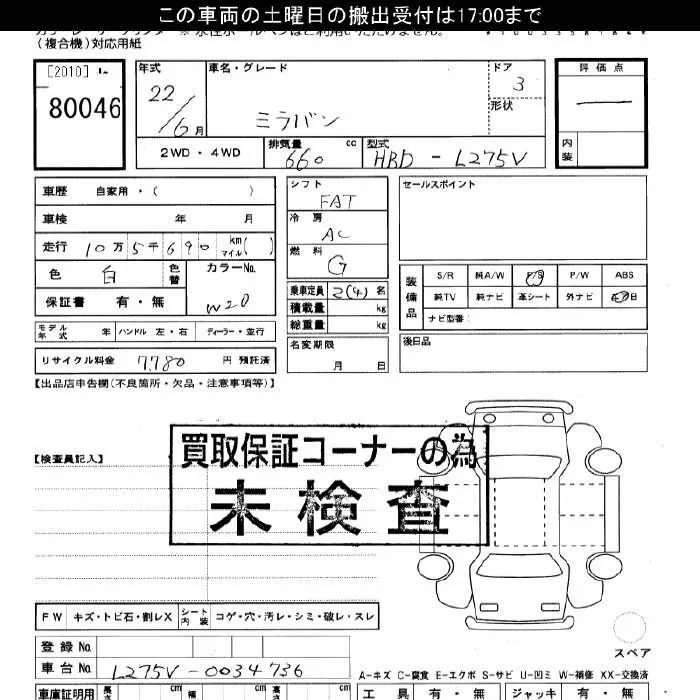 この車両の土曜日の搬出受付は17:00まで
(複合機)対応用紙
[2010]
80046
年式
22/6月
車名・グレード
ミラバン
ドア
3
形状
評価点
―
内装
2WD・4WD
排気量 660 cc
型式 HBD-L275V
車歴 自家用・( )
車検 年 月
走行 10万5千690 km マイル( )
色 白 色替
カラーNo. W20
保証書 有・無
モデル年式 年 ハンドル 左・右 ディーラー・並行
リサイクル料金 7,780 円 預託済
シフト FAT
冷房 AC
燃料 G
乗車定員 2(4)名
積載量 kg
総重量 kg
名変期限
月 日
セールスポイント
装備品
S/R 純A/W P/S P/W ABS
純TV 純ナビ 革シート 外ナビ エアB
ナビ型番:
後日品
【出品店申告欄(不良箇所・欠品・注意事項等)】
【検査員記入】
買取保証コーナーの為
未検査
FW キズ・トビ石・割レX シート内装 コゲ・穴・汚レ・シミ・破レ・スレ
スペア
登録No.
車台No. L275V-0034736
A-キズ C-腐食 E-エクボ S-サビ U-凹ミ W-補修 XX-交換済
車庫証明用 長さ cm 幅 cm 高さ cm
工具 有・無 ジャッキ 有・無